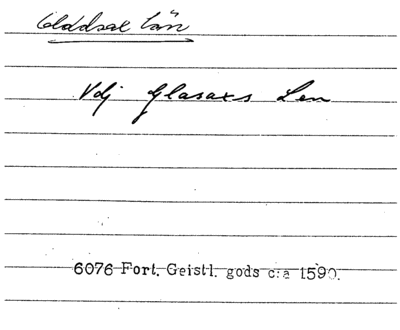 län
Vdj Glasaxs Len
6076 Fort. Geistl. gods c:a 1590.